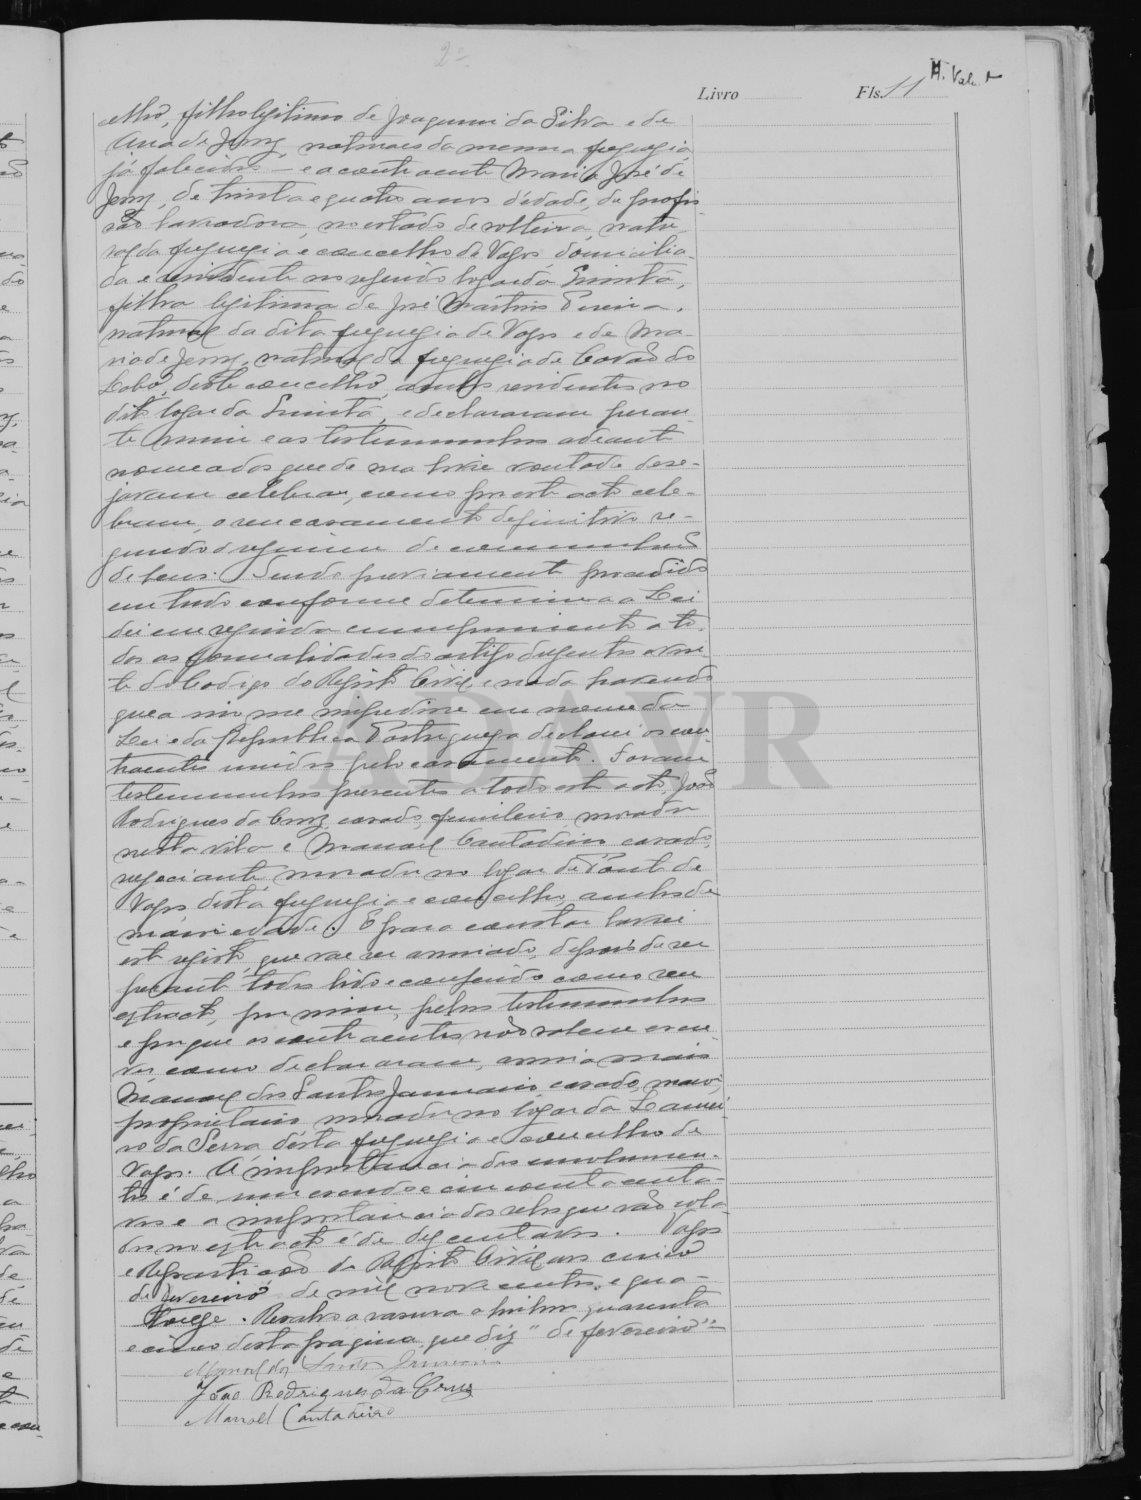 2º
H. Val.
Livro Fls. 11
elho, filho legitimo de Joaquim da Silva e de
Ana de Jesus, naturaes da mesma freguesia,
já falecidos — e a contraente Maria José de
Jesus, de trinta e quatro anos d'edade, de profis
são lavradora, no estado de solteira, natu
ral da freguesia e concelho de Vagos domicilia-
da e residente no referido logar da Quintã,
filha legitima de José Martins Pereira,
natural da dita freguesia de Vagos e de Ma-
ria de Jesus, natural da freguesia de Covão do
Lobo, deste concelho, ambos residentes no
dito logar da Quintã, e declararam peran-
te mim e as testemunhas adeante
nomeadas que de sua livre vontade dese-
javam celebrar, como por este acto cele-
bram, o seu casamento definitivo se-
gundo o regimen de comunhão
de bens. Sendo previamente procedido
em tudo conforme determina a Lei
dei em seguida cumprimento a to-
das as formalidades do artigo duzentos e vin-
te do Codigo do Registo Civil e nada havendo
que a mim me impedisse em nome da
Lei e da Republica Portuguesa declarei os con-
traentes unidos pelo casamento. Foram
testemunhas presentes a todo este acto, João
Rodrigues da Cruz, casado, funileiro, morador
nesta vila e Manoel Cantadeiro casado,
negociante, morador no logar de Ponte de
Vagos desta freguesia e concelho, ambos de
maior edade. E para constar lavrei
este registo, que vae ser assinado, depois de ser
perante todos lido e conferido como seu
extracto, por mim, pelas testemunhas
e porque os contraentes não sabem escre
ver como declararam, assina mais
Manoel dos Santos Januario, casado, maior
proprietario, morador no logar da Lavrei
ro da Serra, desta freguesia e concelho de
Vagos. A importancia dos emolumen-
tos é de um escudo e cincoenta centa-
vos e a importancia dos selos que vão cola-
dos no extracto é de dez centavos. Vagos
e Repartição do Registo Civil aos cinco
de fevereiro de mil novecentos e qua-
torze. Resalvo a rasura a linhas quarenta
e cinco desta pagina que diz "de fevereiro" =
Manoel dos Santos Januario
João Rodrigues da Cruz
Manoel Cantadeiro
ADAVR